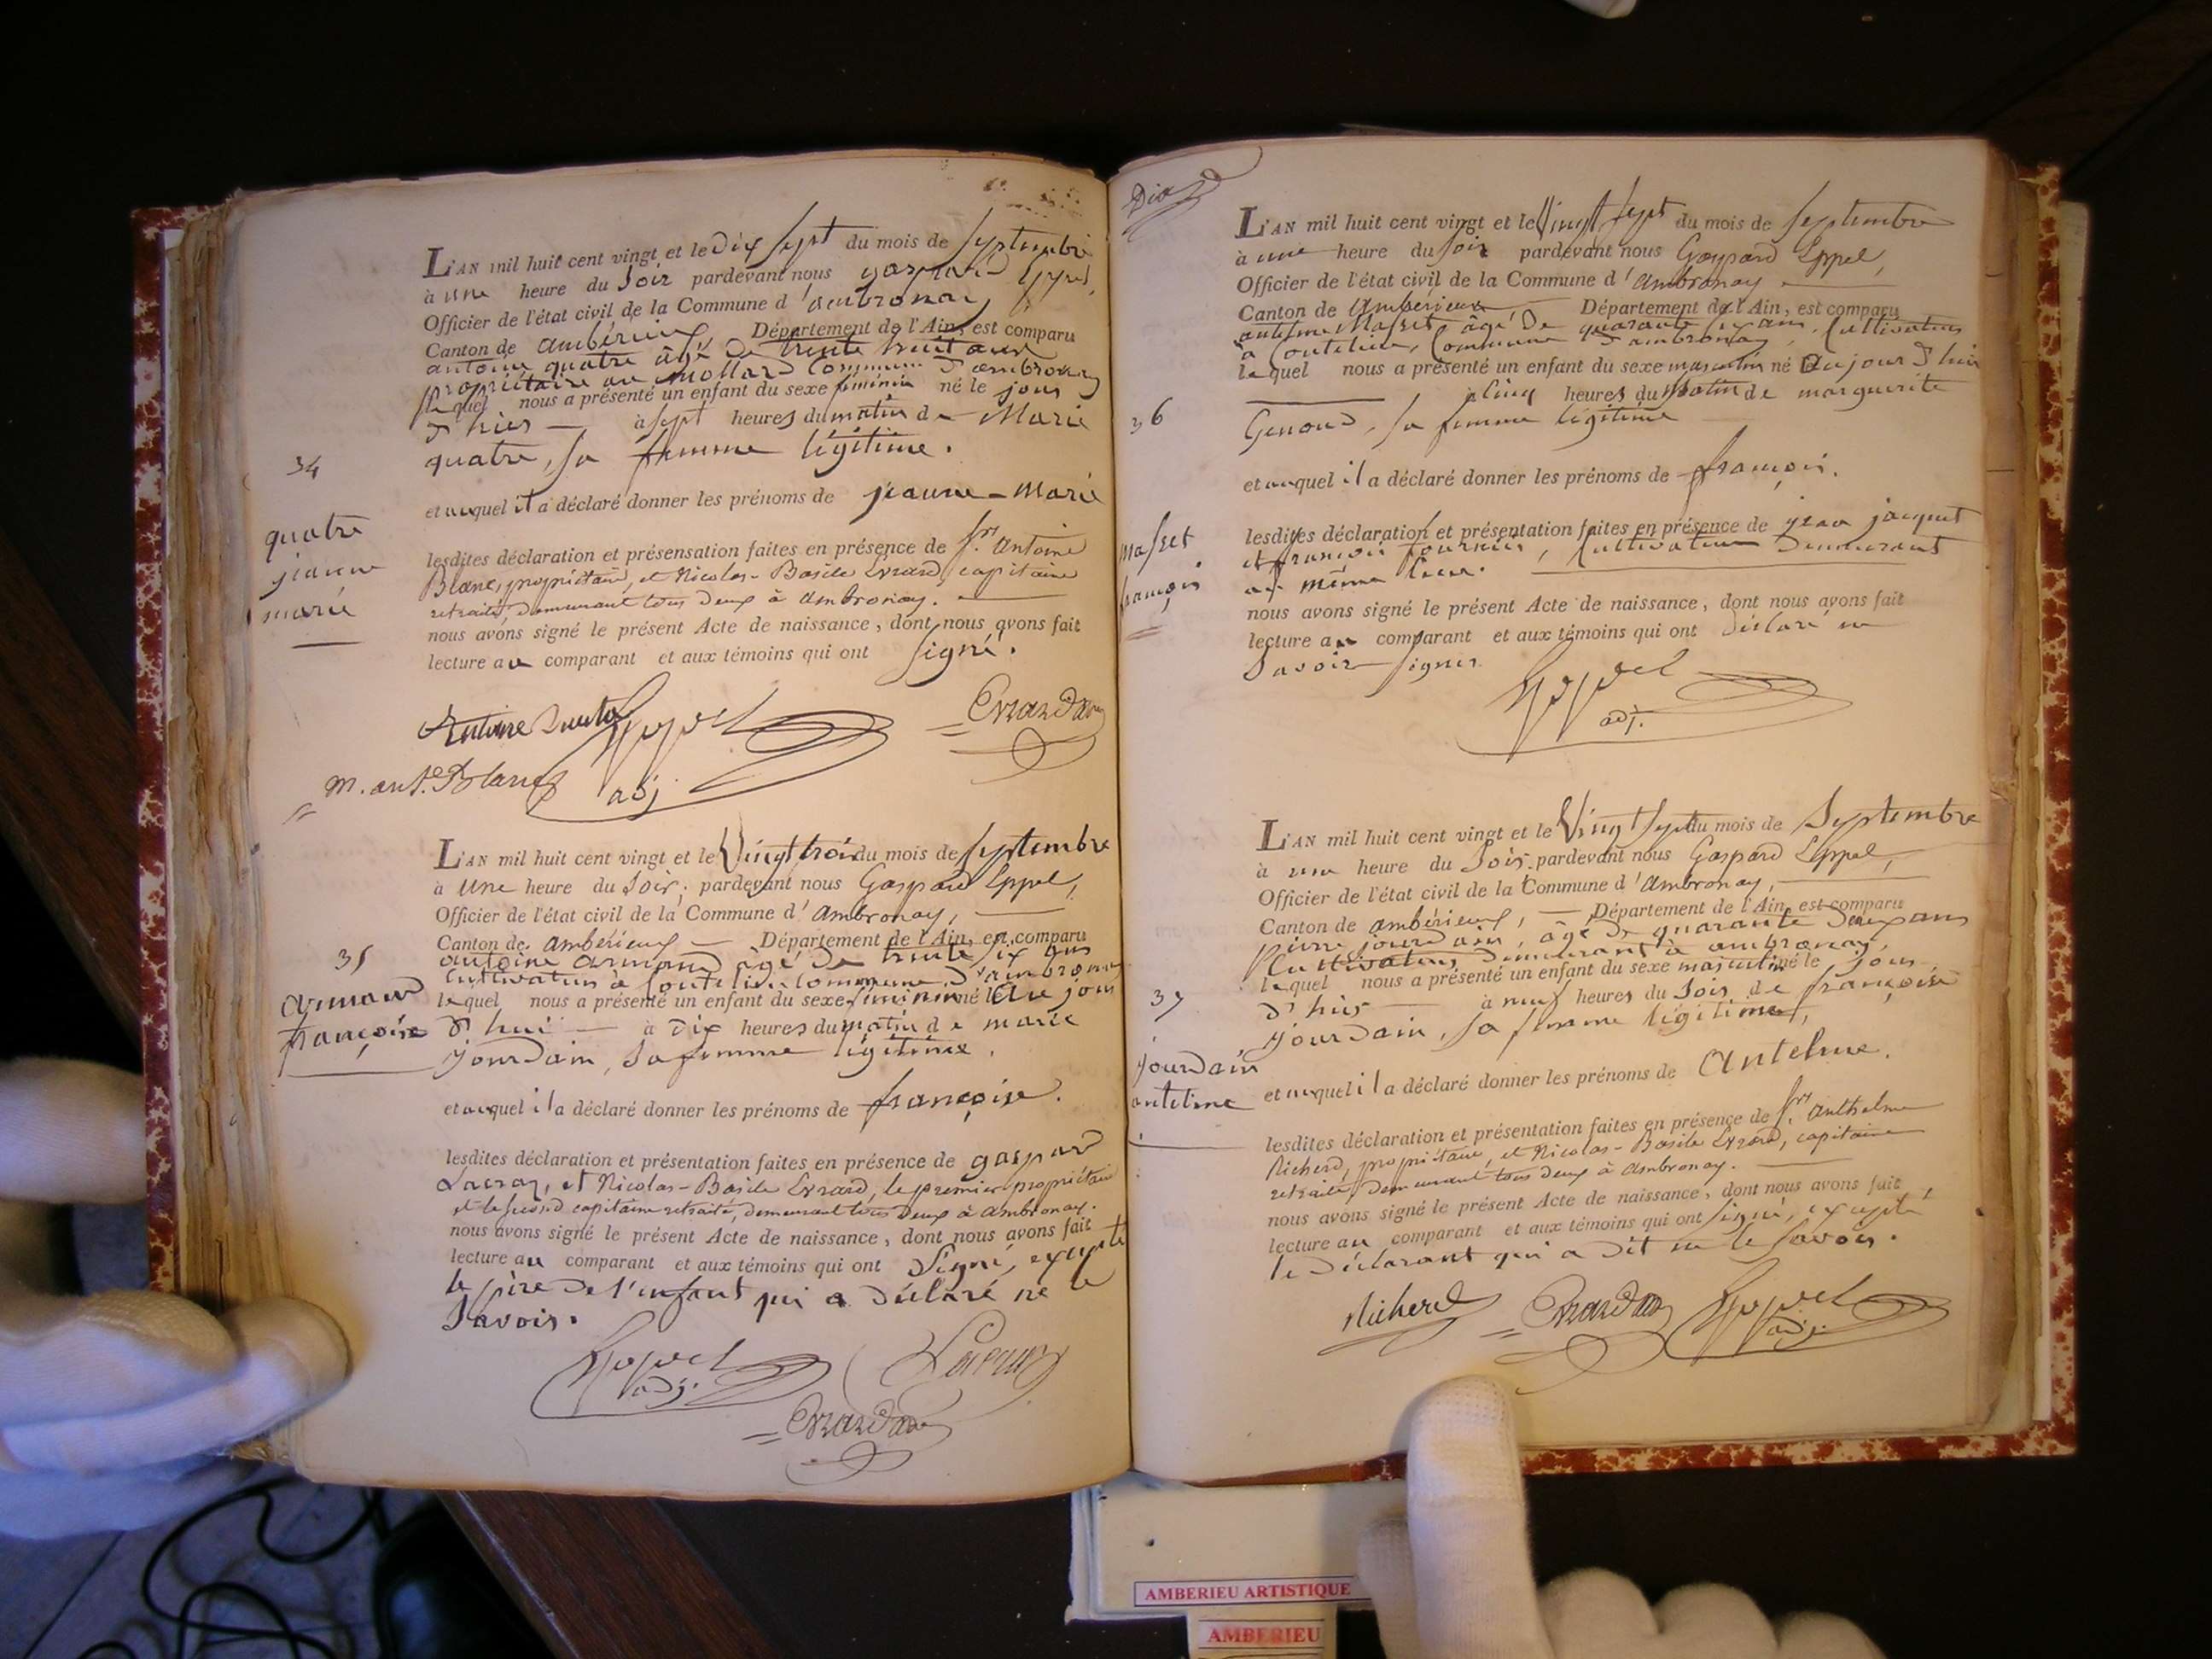 L'AN mil huit cent vingt et le Dix sept du mois de Septembre
à une heure du soir pardevant nous gaspard Eppel,
Officier de l'état civil de la Commune d'ambronay
Canton de ambérieux Département de l'Ain, est comparu
antoine quatre âgé de trente huit ans
propriétaire au Mollard Commune d'ambronay
lequel nous a présenté un enfant du sexe féminin né le jour
d'hier à sept heures du matin de Marie
quatre, sa femme légitime.
34
et auquel il a déclaré donner les prénoms de jeanne-Marie
quatre
jeanne
marie
lesdites déclaration et présensation faites en présence de Sr. Antoine
Blanc, propriétaire, et Nicolas-Basile Evrard, capitaine
retraité, demeurant tous deux à Ambronay.
nous avons signé le présent Acte de naissance, dont nous avons fait
lecture au comparant et aux témoins qui ont signé.
Antoine Eppel Evrard
m. ant.e Blanc adj.
L'AN mil huit cent vingt et le Vingt trois du mois de Septembre
à une heure du soir. pardevant nous Gaspard Eppel,
Officier de l'état civil de la Commune d'ambronay,
Canton de ambérieux Département de l'Ain, est comparu
antoine armand âgé de trente six ans
cultivateur à Coutelieu Commune d'ambronay
lequel nous a présenté un enfant du sexe féminin né le Au jour
d'hui à dix heures du matin de marie
jourdain, sa femme légitime.
35
armand
françoise
et auquel il a déclaré donner les prénoms de françoise.
lesdites déclaration et présentation faites en présence de gaspard
Lacraz, et Nicolas-Basile Evrard, le premier propriétaire
et le second capitaine retraité, demeurant tous deux à Ambronay.
nous avons signé le présent Acte de naissance, dont nous avons fait
lecture au comparant et aux témoins qui ont signé, excepté
le père de l'enfant qui a déclaré ne le
savoir.
Eppel
adj.
Evrard
Diard
L'AN mil huit cent vingt et le Vingt sept du mois de Septembre
à une heure du soir pardevant nous Gaspard Eppel,
Officier de l'état civil de la Commune d'ambronay
Canton de Ambérieux Département de l'Ain, est comparu
antelme Massit âgé de quarante six ans, Cultivateur
à Coutelieu, Commune d'ambronay,
lequel nous a présenté un enfant du sexe masculin né Aujourd'hui
à cinq heures du matin de marguerite
Genoud, sa femme légitime
36
et auquel il a déclaré donner les prénoms de françois.
Massit
françois
lesdites déclaration et présentation faites en présence de jean jacquet
et françois fournier, Cultivateurs Demeurant
au même lieu.
nous avons signé le présent Acte de naissance, dont nous avons fait
lecture au comparant et aux témoins qui ont déclaré ne
savoir signer.
Eppel
adj.
L'AN mil huit cent vingt et le Vingt sept du mois de Septembre
à une heure du soir. pardevant nous Gaspard Eppel,
Officier de l'état civil de la Commune d'Ambronay,
Canton de ambérieux, Département de l'Ain, est comparu
Pierre jourdain, âgé de quarante deux ans
Cultivateur demeurant à ambronay,
lequel nous a présenté un enfant du sexe masculin né le jour
d'hier à neuf heures du soir de françoise
jourdain, sa femme légitime,
37
jourdain
antelme
et auquel il a déclaré donner les prénoms de Antelme.
lesdites déclaration et présentation faites en présence de Sr. Anthelme
Richerd, propriétaire, et Nicolas-Basile Evrard, capitaine
retraité, demeurant tous deux à Ambronay.
nous avons signé le présent Acte de naissance, dont nous avons fait
lecture au comparant et aux témoins qui ont signé, excepté
le déclarant qui a dit ne le savoir.
Richerd Evrard Eppel
adj.
AMBERIEU ARTISTIQUE
AMBERIEU